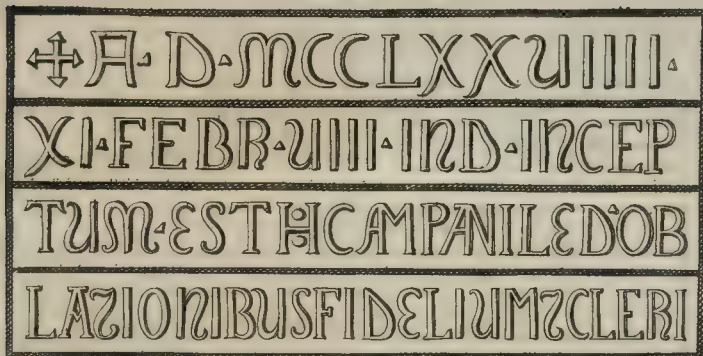 ✠ A · D · MCCLXXUIIII ·
XI · FEBR · UIII · IND · INCEP
TUM · EST H CAMPANILE D'OB
LAZIONIBUS FIDELIUM ⁊ CLERI